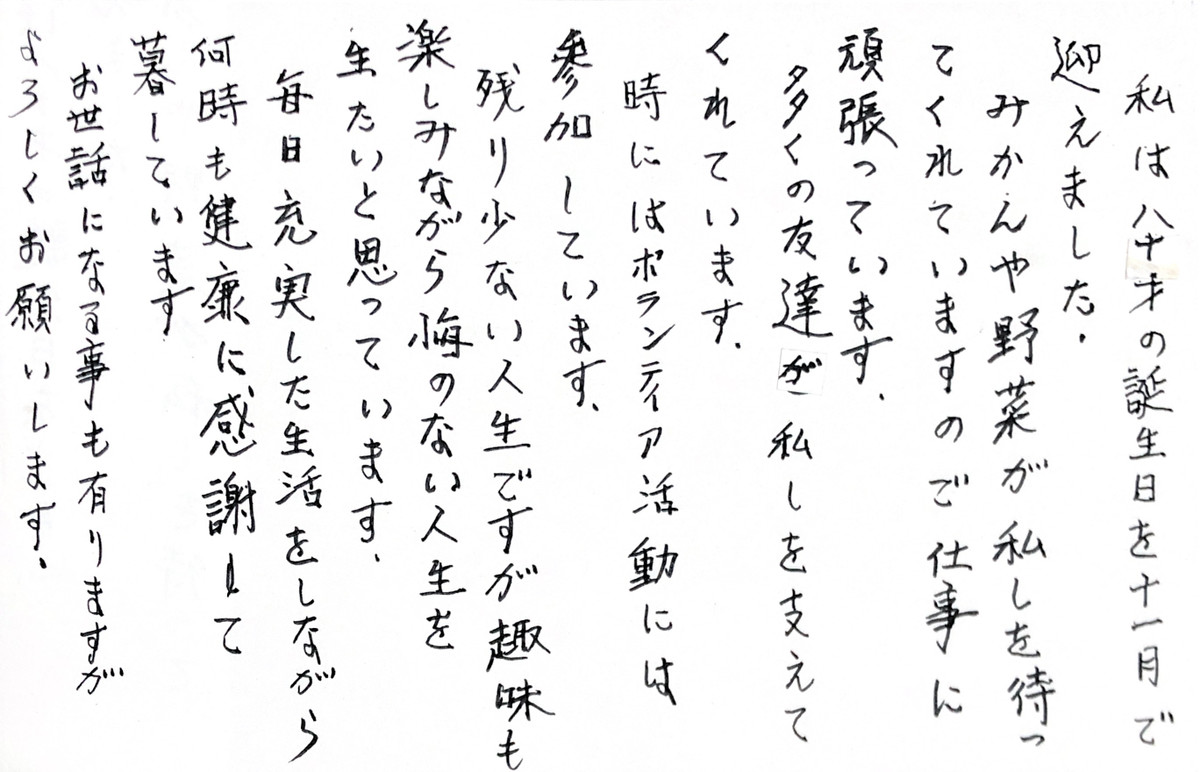 私は八十才の誕生日を十一月で
迎えました.
みかんや野菜が私しを待っ
てくれていますので仕事に
頑張っています.
多くの友達が私しを支えて
くれています.
時にはボランティア活動には
参加しています.
残り少ない人生ですが趣味も
楽しみながら悔のない人生を
生たいと思っています.
毎日充実した生活をしながら
何時も健康に感謝して
暮しています.
お世話になる事も有りますが
よろしくお願いします.